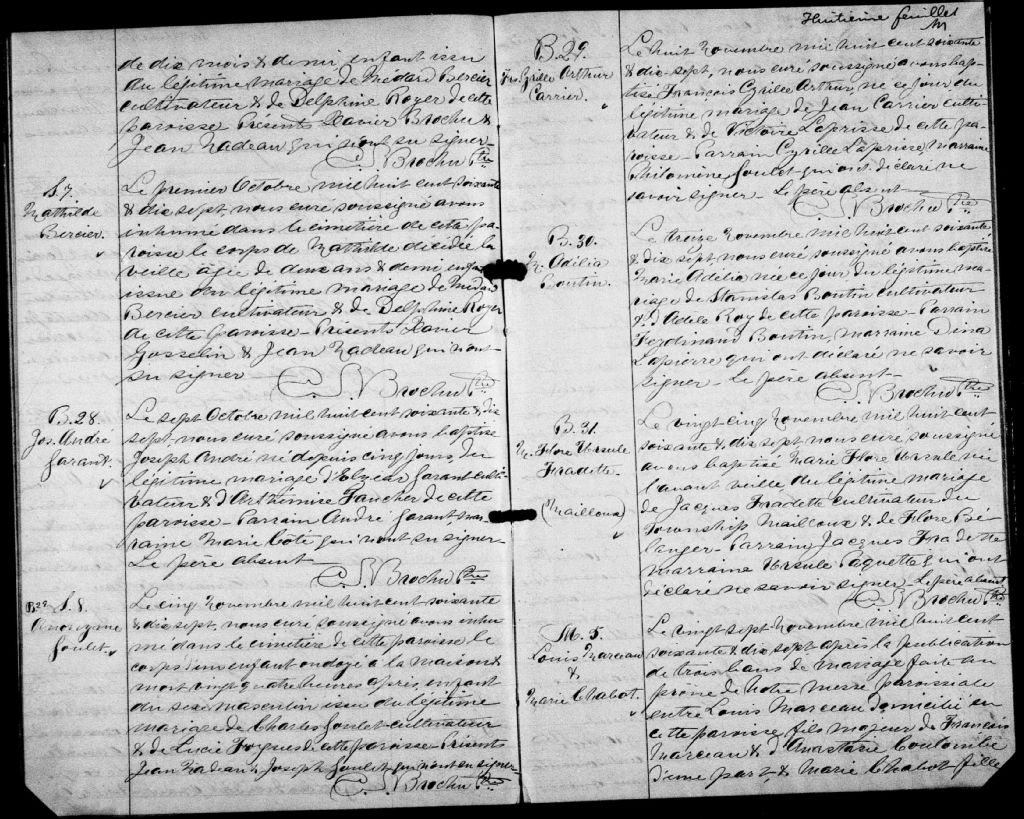 de dix mois & demi enfant issu
du légitime mariage de Médard Bercier
cultivateur & de Delphine Royer de cette
paroisse Présents Xavier Brochu &
Jean Nadeau qui n'ont su signer-
C. S. Brochu Ptre
S. 7.
Mathilde
Bercier.
Le premier Octobre mil huit cent soixante
& dix sept, nous curé soussigné avons
inhumé dans le cimetière de cette pa-
roisse le corps de Mathilde décédée la
veille agée de deux ans & demi enfant
issue du légitime mariage de Médard
Bercier cultivateur & de Delphine Royer
de cette paroisse- Présents Xavier
Gosselin & Jean Nadeau qui n'ont
su signer
C. S. Brochu Ptre
B. 28.
Jos. André
Garant.
Le sept Octobre mil huit cent soixante & dix
sept nous curé soussigné avons baptisé
Joseph André né depuis cinq jours du
légitime mariage d'Elzéar Garant culti-
vateur & d'Arthémise Faucher de cette
paroisse- Parrain André Garant mar-
raine Marie Coté qui n'ont su signer-
Le père absent
C. S. Brochu Ptre
B. 29 S. 8.
Anonyme
Goulet.
Le cinq Novembre mil huit cent soixante
& dix sept, nous curé soussigné avons inhu-
mé dans le cimetière de cette paroisse le
corps d'un enfant ondoyé à la maison &
mort vingt quatre heures après, enfant
du sexe masculin issu du légitime
mariage de Charles Goulet cultivateur
& de Lucie de cette paroisse Présents
Jean Nadeau & Joseph Goulet qui n'ont su signer
C. S. Brochu Ptre
Huitième feuillet
B. 29.
Frs. Cyrille Arthur
Carrier.
Le huit Novembre mil huit cent soixante
& dix-sept, nous curé soussigné avons bap-
tisé François Cyrille Arthur, né ce jour du
légitime mariage de Jean Carrier culti-
vateur & de Victoire Laprisse de cette pa-
roisse- Parrain Cyrille Laprisse marraine
Philomène Goulet qui ont déclaré ne
savoir signer. Le père absent
C. S. Brochu Ptre
B. 30.
M. Adélia
Boutin.
Le treize Novembre mil huit cent soixante
& dix sept nous curé soussigné avons baptisé
Marie Adélia née ce jour du légitime ma-
riage de Stanislas Boutin cultivateur
& d'Adèle Roy de cette paroisse- Parrain
Ferdinand Boutin, marraine Dina
Lapierre qui ont déclaré ne savoir
signer- Le père absent
C. S. Brochu Ptre
B. 31.
M. Flore Ursule
Fradette.
(Mailloux)
Le vingt cinq Novembre mil huit cent
soixante & dix sept nous curé soussigné
avons baptisé Marie Flore Ursule née
l'avant veille du légitime mariage
de Jacques Fradette cultivateur du
Township Mailloux & de Flore Bé-
langer- Parrain Jacques Fradette
marraine Ursule Paquette qui ont
déclaré ne savoir signer Le père absent
C. S. Brochu Ptre
M. 5.
Louis Marceau
&
Marie Chabot.
Le vingt sept Novembre mil huit cent
soixante & dix sept après la publication
de trois bans de mariage faite au
prône de notre messe paroissiale
entre Louis Marceau domicilié en
cette paroisse fils majeur de François
Marceau & d'Anastasie Coulombe
d'une part & Marie Chabot fille